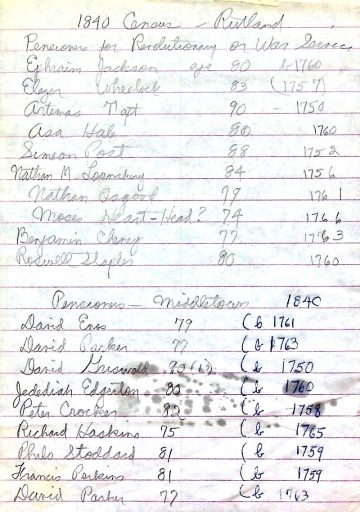 1840 Census - Rutland
Pensioners for Revolutionary or War Service
Ephraim Jackson age 80 b 1760
Elezer Wheelock 83 (1757)
Artemas Taft 90 - 1750
Asa Hale 80 1760
Simeon Post 88 1752
Nathan M. Lounsbury 84 1756
Nathan Osgood 79 1761
Moses Heart-Head? 74 1766
Benjamin Cheny 77 1763
Roswell Staples 80 1760
Pensioners - Middletown 1840
David Enos 79 (b 1761
David Parker 77 (b 1763
David Griswold (b 1750
Jedediah Edgerton 80 (b 1760
Peter Crocker 82 (b 1758
Richard Haskins 75 (b 1765
Philo Stoddard 81 (b 1759
Francis Perkins 81 (b 1759
David Parker 77 (b 1763